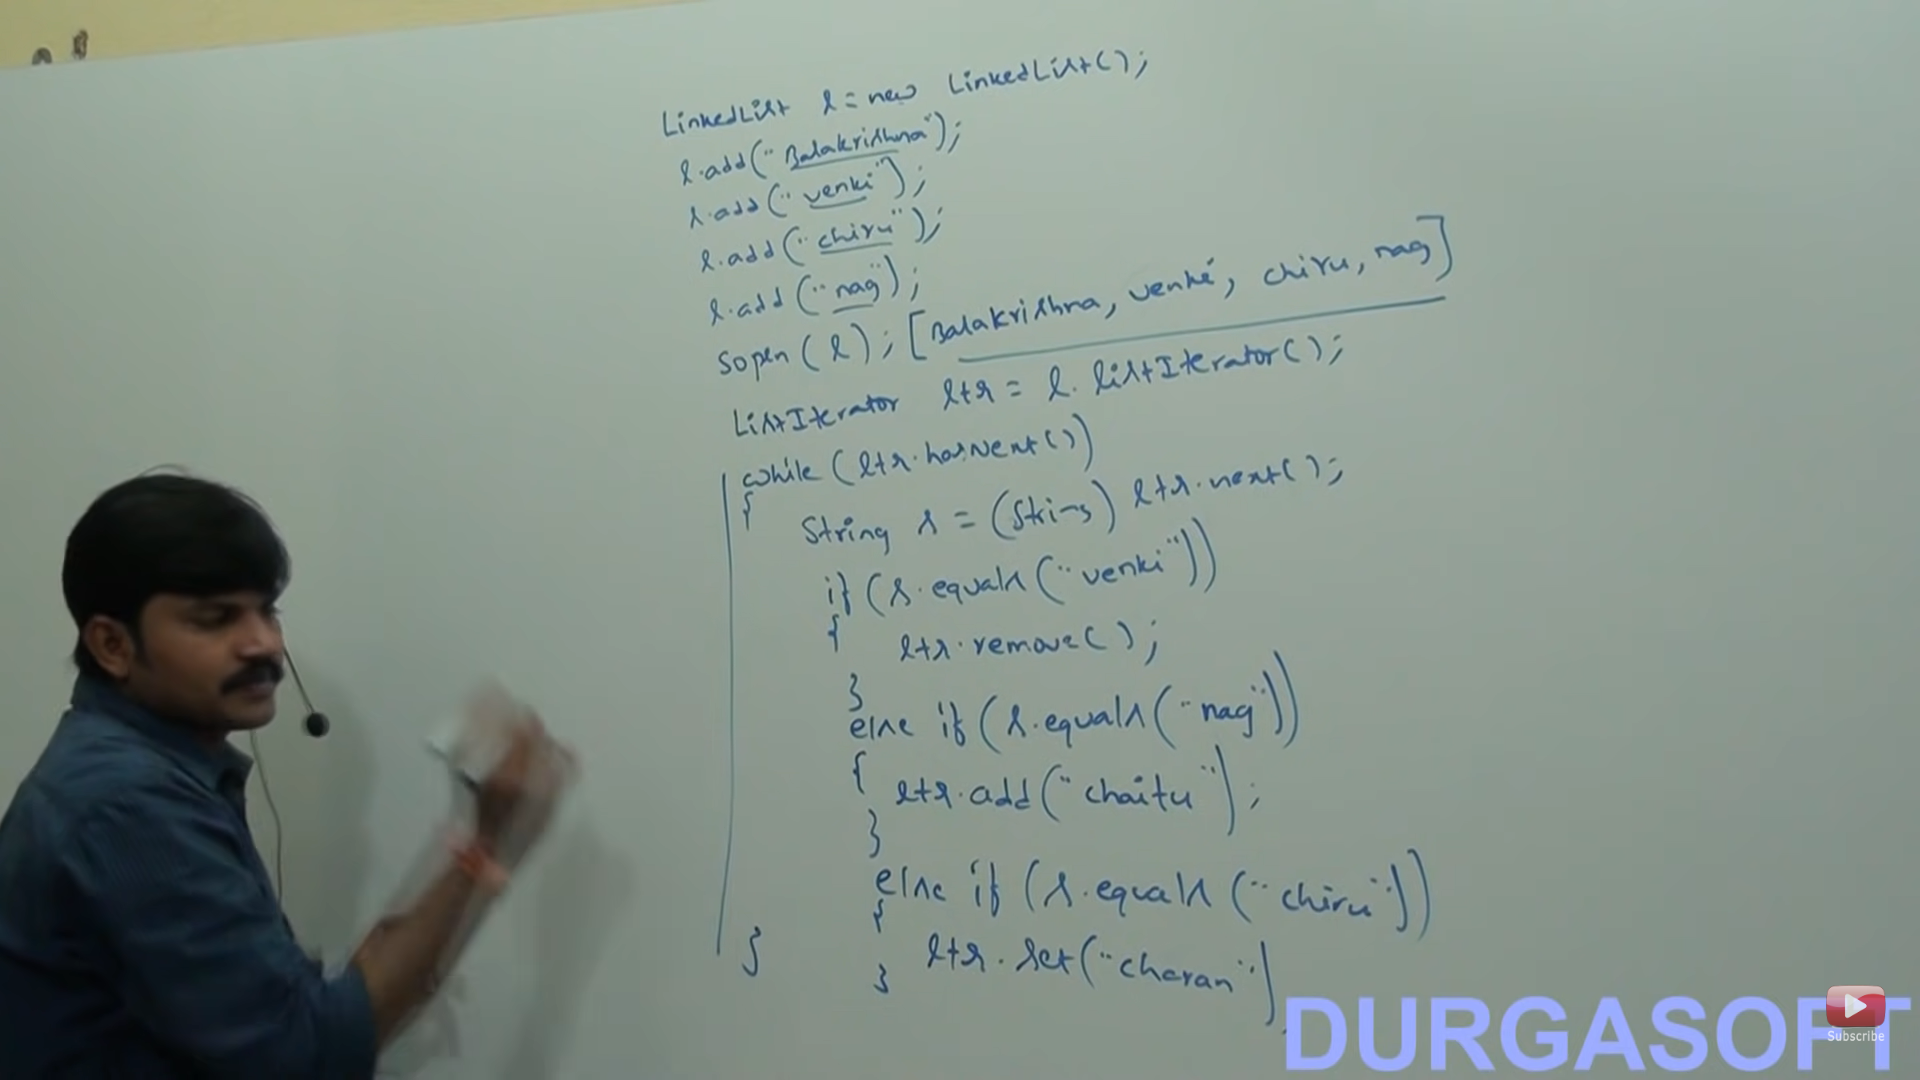 LinkedList l = new LinkedList();
l.add("Balakrishna");
l.add("venki");
l.add("chiru");
l.add("nag");
sopln(l); [Balakrishna, venki, chiru, nag]
ListIterator ltr = l.listIterator();
while (ltr.hasNext())
{
String s = (String) ltr.next();
if (s.equals("venki"))
{ ltr.remove();
}
else if (s.equals("nag"))
{ ltr.add("chaitu");
}
else if (s.equals("chiru"))
{
ltr.set("charan")
} }
DURGASOFT
Subscribe